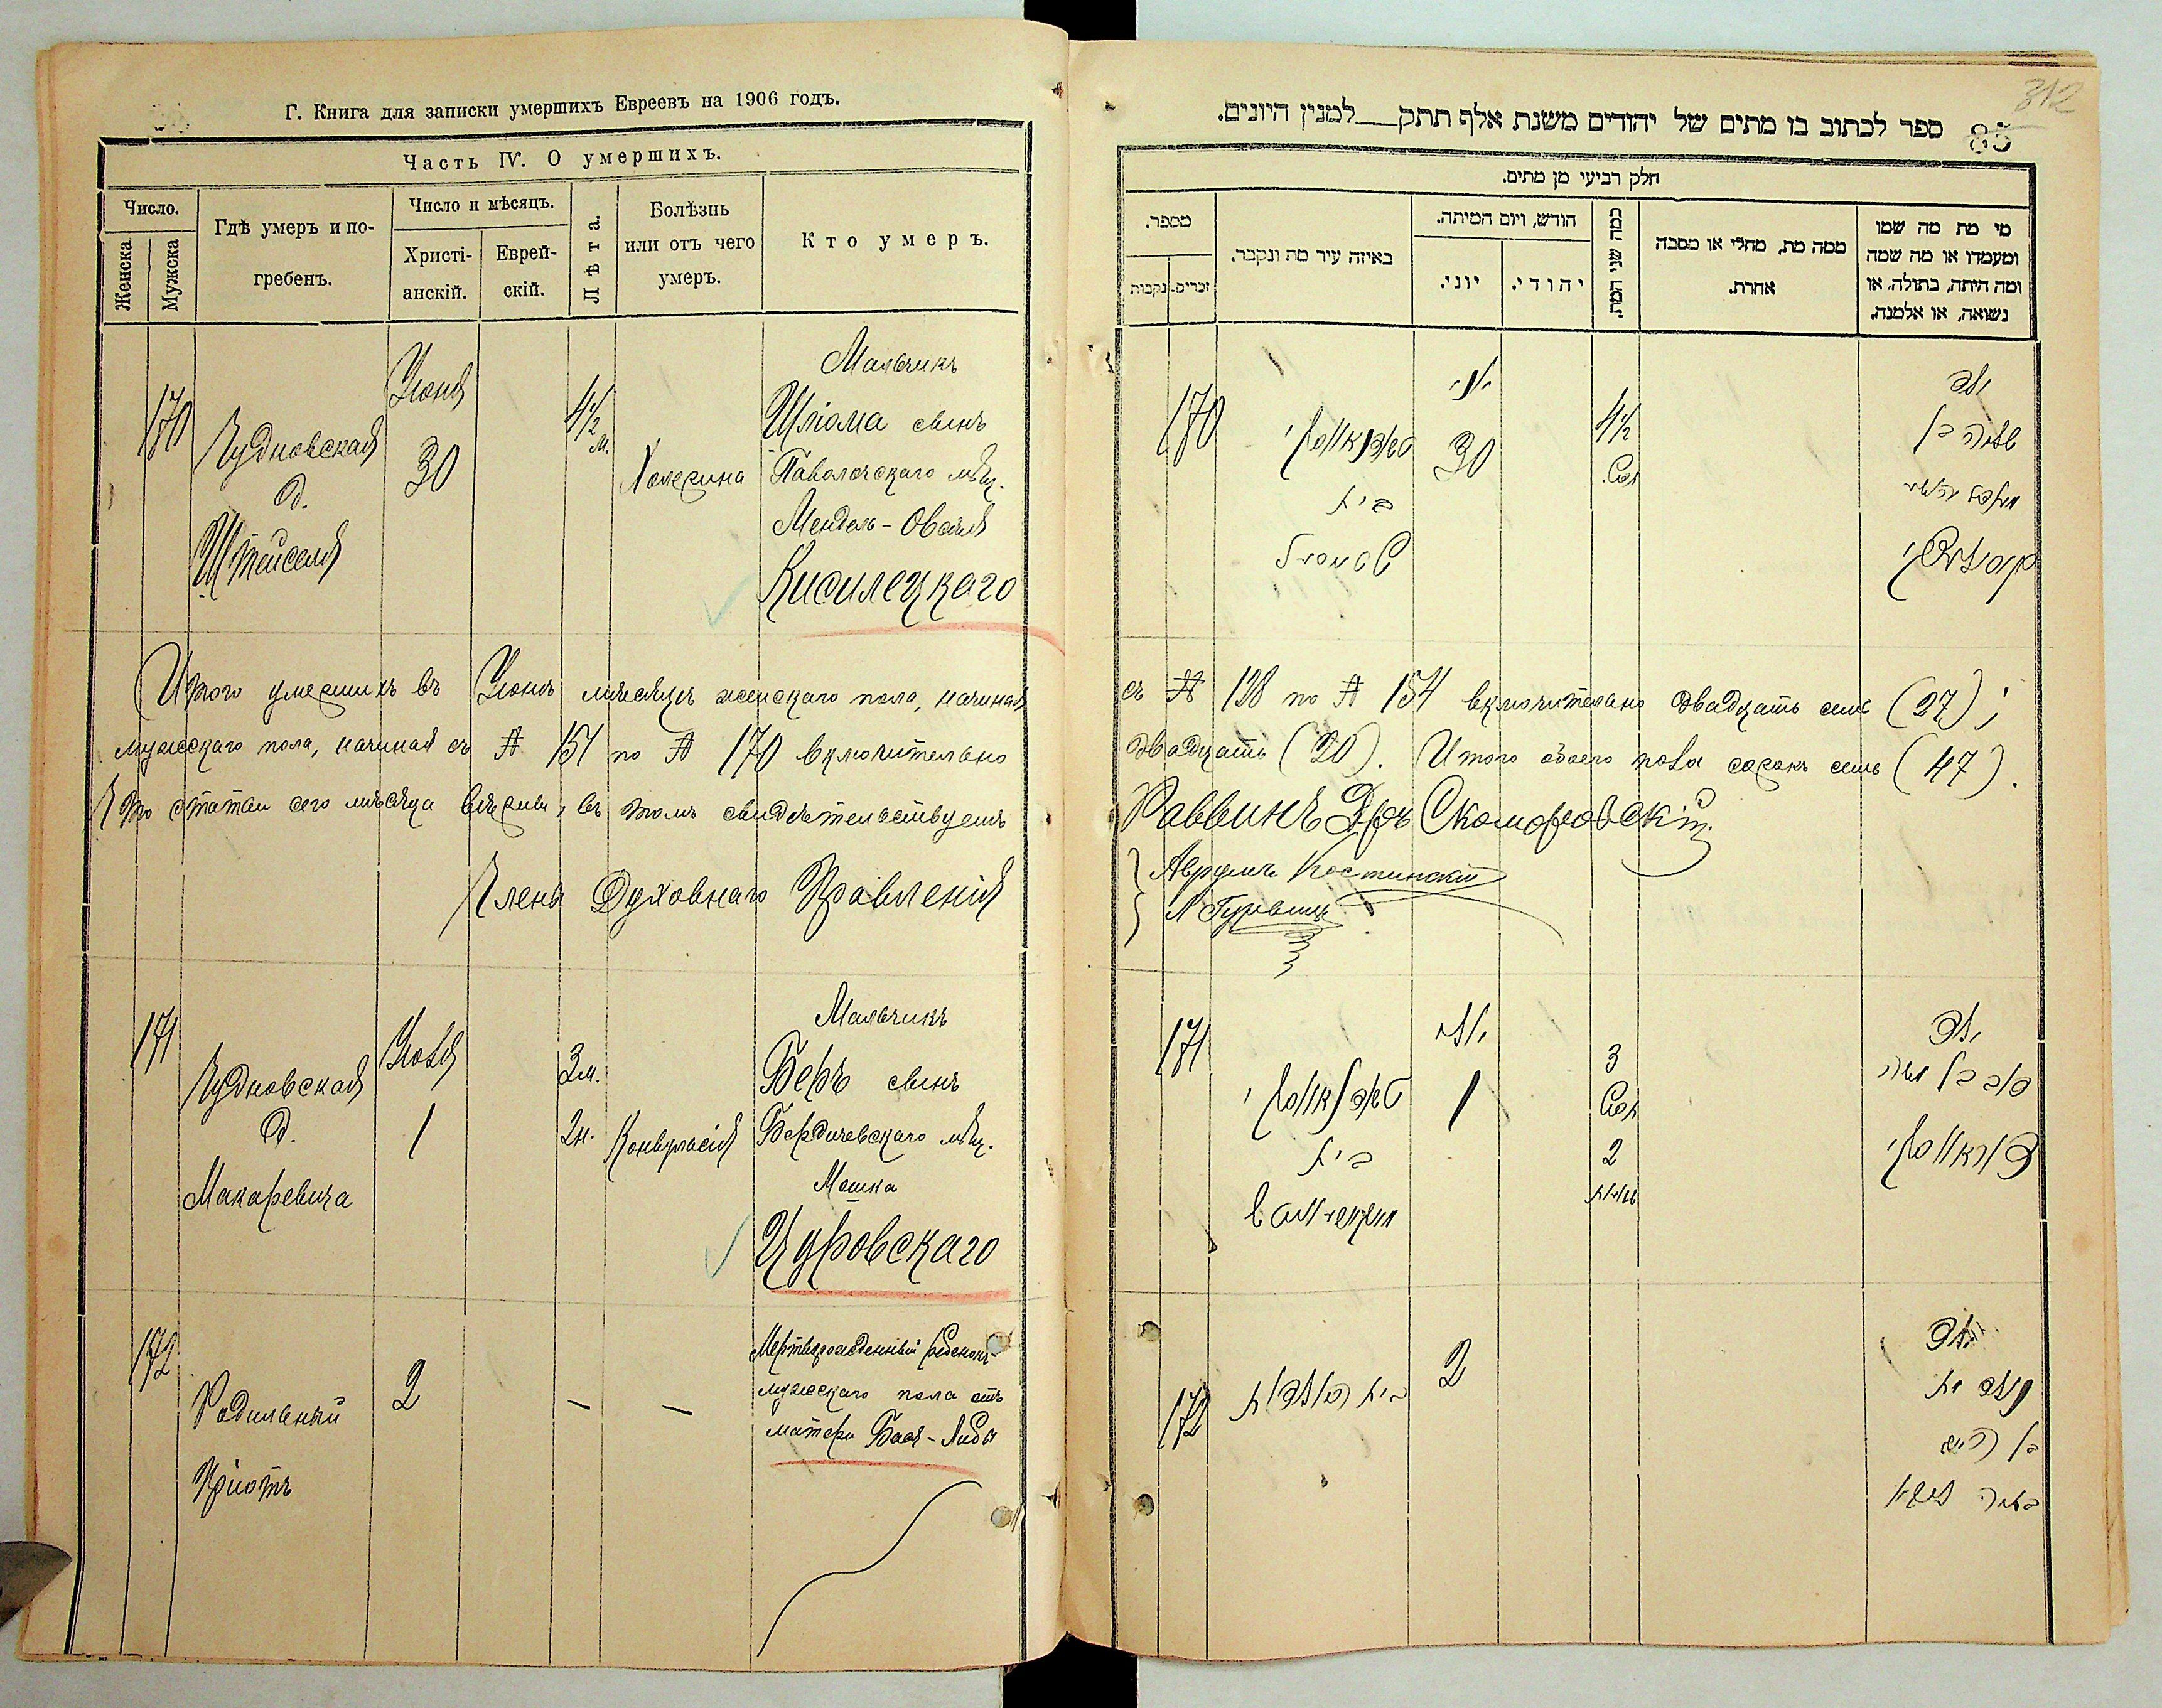 Г. Книга для записки умершихъ Евреевъ на 1906 годъ.
Часть IV. О умершихъ.
Число.
Женска
Мужска
Гдѣ умеръ и по-
гребенъ.
Число и мѣсяцъ.
Христі-
анскій.
Еврей-
скій.
Лѣта.
Болѣзнь
или отъ чего
умеръ.
Кто умеръ.
170
Чудновская
д.
Штейселя
Іюня
30
4½
м.
Холерина
Мальчикъ
Шліома сынъ
Паволочскаго мѣщ.
Мендель-Овсея
Кисилецкаго
Итого умершихъ въ Іюнѣ мѣсяцѣ женскаго пола, начиная
мужескаго пола, начиная съ № 151 по № 170 включительно
Что статьи сего мѣсяца вѣрны, въ томъ свидѣтельствуемъ
Члены Духовнаго Правленія
171
Чудновская
д.
Макаревича
Іюля
1
3 м.
2 н.
Конвульсія
Мальчикъ
Беръ сынъ
Бердичевскаго мѣщ.
Мошка
Цуровскаго
172
Родильный
Пріютъ
2
—
—
Мертворожденный ребенокъ
мужескаго пола отъ
матери Бася-Либы
312
85
ספר לכתוב בו מתים של יהודים משנת אלף תתק__למנין היונים.
חלק רביעי מן מתים.
מספר.
זכרים.
נקבות
באיזה עיר מת ונקבר.
חודש, ויום המיתה.
יוני.
יהודי.
כמה שני המת.
ממה מת, מחלי או מסבה
אחרת.
מי מת מה שמו
ומעמדו או מה שמה
ומה היתה, בתולה, או
נשואה, או אלמנה.
170
בית
יוני
30
4½
חדש
ילד
שלמה בן
съ № 128 по № 154 включительно двадцать семь (27);
двадцать (20). Итого обоего пола сорокъ семь (47).
Раввинъ Д-ръ Скоморовскій
Аврумъ Костинскій
Л Гурвицъ
171
בית
יולי
1
3
חדש
2
ילד
דוב בן משה
172
בית היולדות
2
ילד
נולד מת